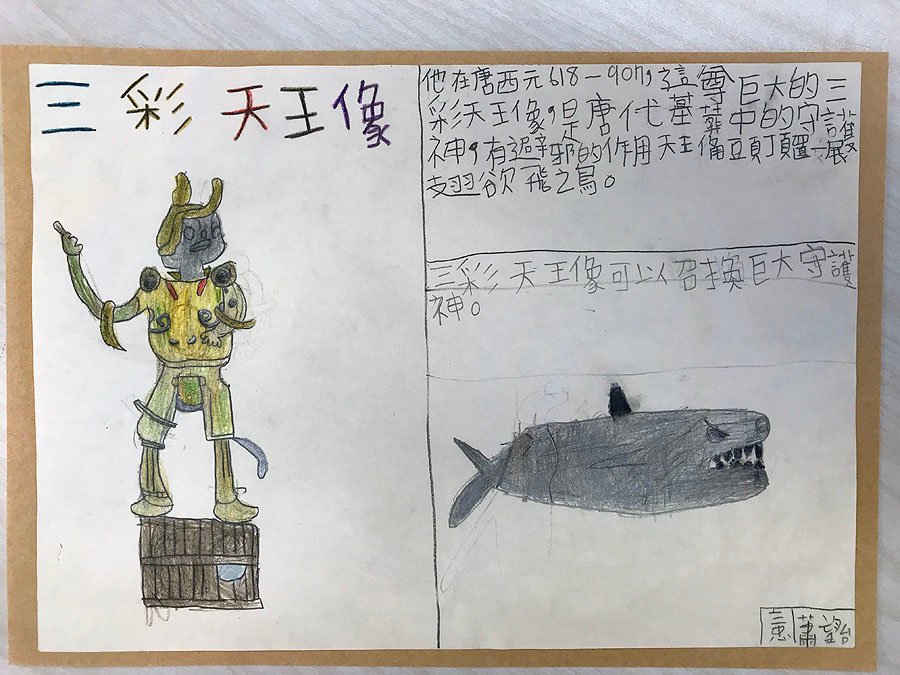 三彩天王像
他在唐西元618－907，這尊巨大的三
彩天王像，是唐代墓葬中的守護
神，有避邪的作用天王像頭頂置一展
翅欲飛之鳥。
三彩天王像可以召換巨大守護
神。
蕭